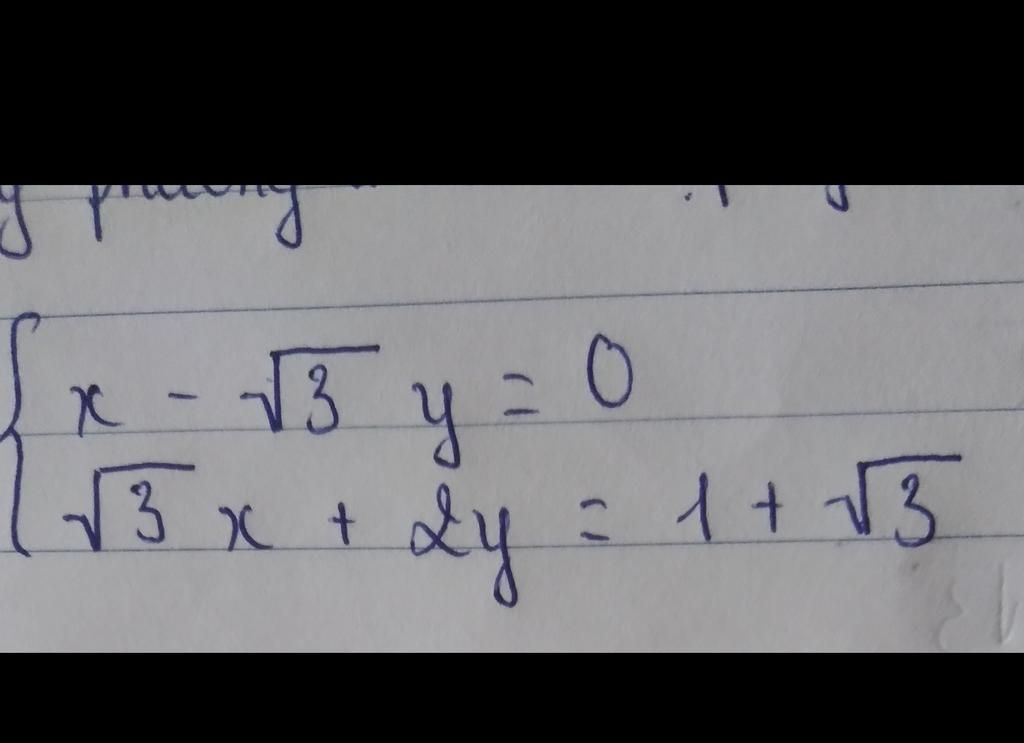 x - √3 y = 0
√3 x + 2y = 1 + √3